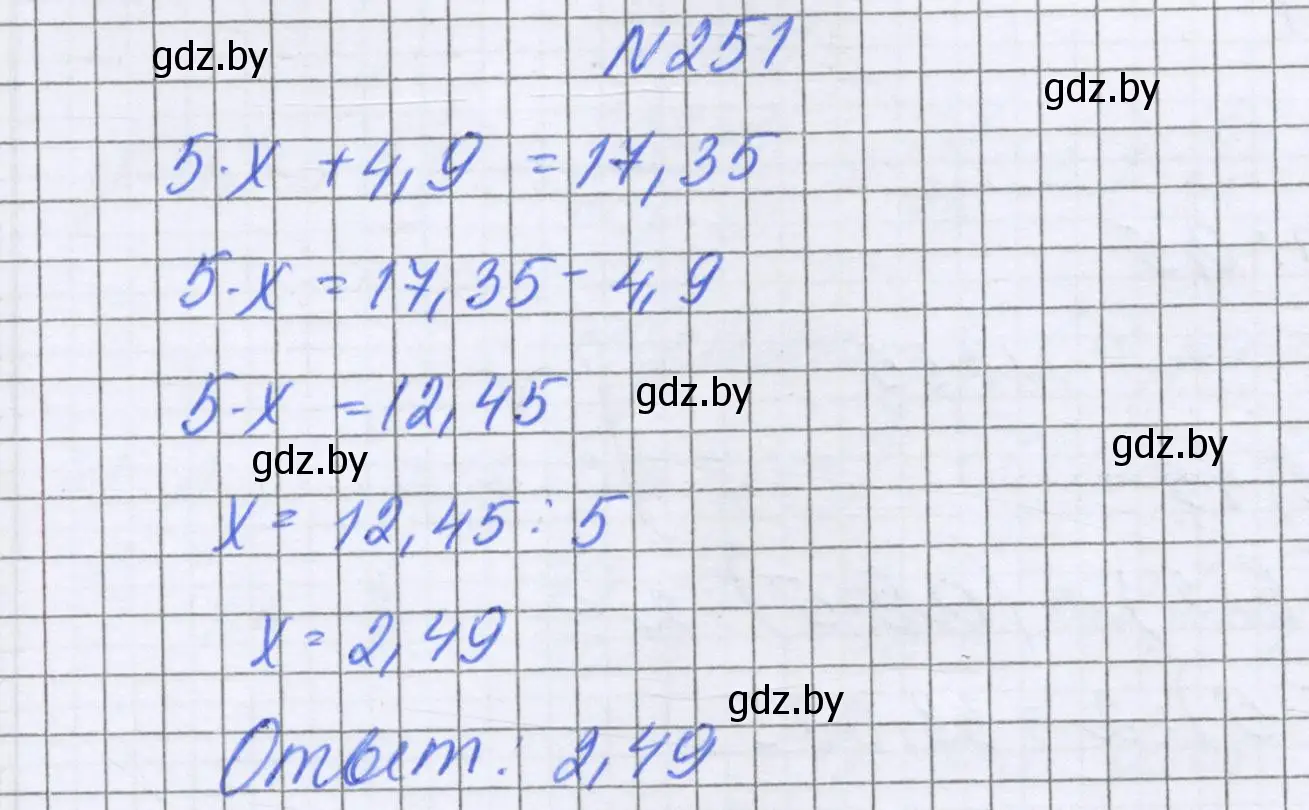 gdz.by
N251
gdz.by
5·x + 4,9 = 17,35
5·x = 17,35 - 4,9
5·x = 12,45
gdz.by
gdz.by
gdz.by
x = 12,45 : 5
x = 2,49
gdz.by
Ответ: 2,49